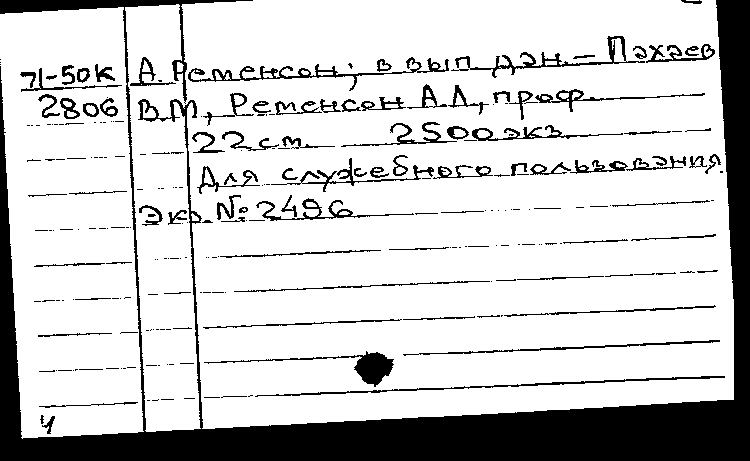 71-50К А. Ременсон; в вып. дан. – Пахаев
2806 В.М, Ременсон А.Л, проф.
22 см. 2500 экз.
Для служебного пользования
Экз. № 2496
4